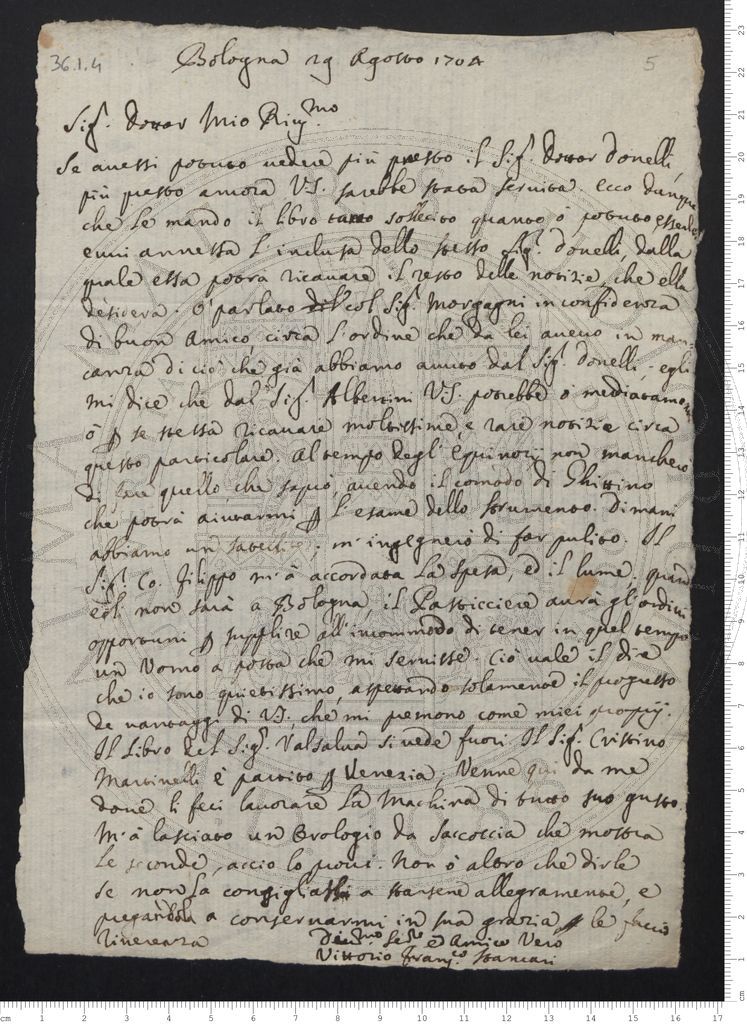 36.1.4
Bologna 29 Agosto 1704
5
Sig.r Dottor Mio Riv.mo
Se avessi potuto vedere più presto il Sig.r Dottor Donelli,
più presto ancora V.S. sarebbe stata servita. Ecco dunque
che le mando il libro tanto sollecito quanto ò potuto
evvi annessa l'inclusa dello stesso Sig.r Donelli, dalla
quale essa potrà ricavare il resto delle notizie, che ella
desidera. Ò parlato col Sig.r Morgagni in confidenza
di buon Amico circa l'ordine che da lei avevo in man-
canza di ciò che già abbiamo avuto dal Sig.r Donelli, egli
mi dice che dal Sig.r Albertini V.S. potrebbe o mediatamente
ò p se stessa ricavare moltissime, e rare notizie circa
questo particolare. Al tempo degl'Equinozij non mancherò
di fare quello, che saprò, avendo il comodo di Ghittino
che potrà aiutarmi p l'esame dello strumento. Dimani
abbiamo un m'ingegnerò di far pulito. Il
Sig.r Co. Filippo m'à accordata la spesa, ed il lume, quando
egli non sarà a Bologna, il Pasticciere avrà gl'ordini
opportuni p supplire all'incommodo di tener in quel tempo
un Uomo a posta che mi servisse. Ciò vale il dire
che io sono quietissimo, aspettando solamente il progresso
de vantaggi di V.S., che mi premono come miei proprij.
Il Libro del Sig.r Valsalva si vede fuori. Il Sig.r Cristino
Martinelli è partito p Venezia. Venne qui da me
dove li feci lavorare la Machina di tutto suo gusto.
M'à lasciato un Orologio da saccoccia che mostra
le seconde, acciò lo provi. Non ò altro che dirle
se non la a starsene allegramente, e
pregandola a conservarmi in sua grazia, le faccio
riverenza
Dev.mo Se.re ed Amico Vero
Vittorio Fran.co Stancari